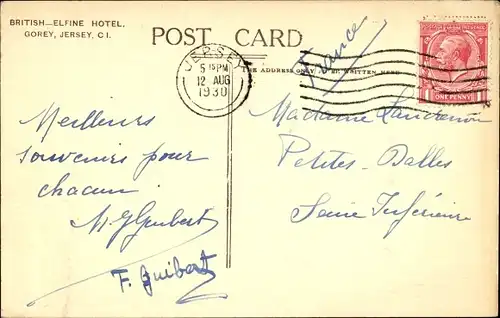 BRITISH—ELFINE HOTEL,
GOREY, JERSEY, C.I.
POST CARD
THE ADDRESS ONLY TO BE WRITTEN HERE
JERSEY
5 15 PM
12 AUG
1930
ONE PENNY
France
Meilleurs
souvenirs pour
chacun
M. G. Guibert
F. Guibert
Madame
Petites-Dalles
Seine Inférieure